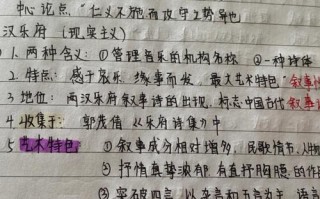 中心论点"仁义不施而攻守之势异也
汉乐府 (现实主义)
1. 两种含义: ①管理音乐的机构名称 ②一种诗体
2. 特点: 感于哀乐 缘事而发. 最大艺术特色"叙事性
3. 地位: 两汉乐府叙事诗的出现, 标志中国古代叙事诗
4. 收集于: 郭茂倩《乐府诗集》中
5. 艺术特色 ①叙事成分相对增多, 民歌情节、人物
②抒情真挚浓郁 有直抒胸臆的作
③突破四言, 以杂言和五言为主 语言